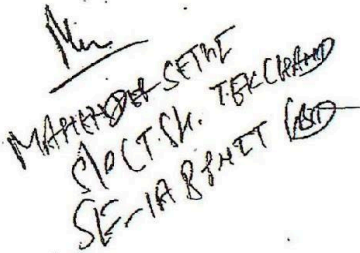 MAHENDER SETHI
S/O LT. SH. TEK CHAND
5E-1A B.P NIT FBD